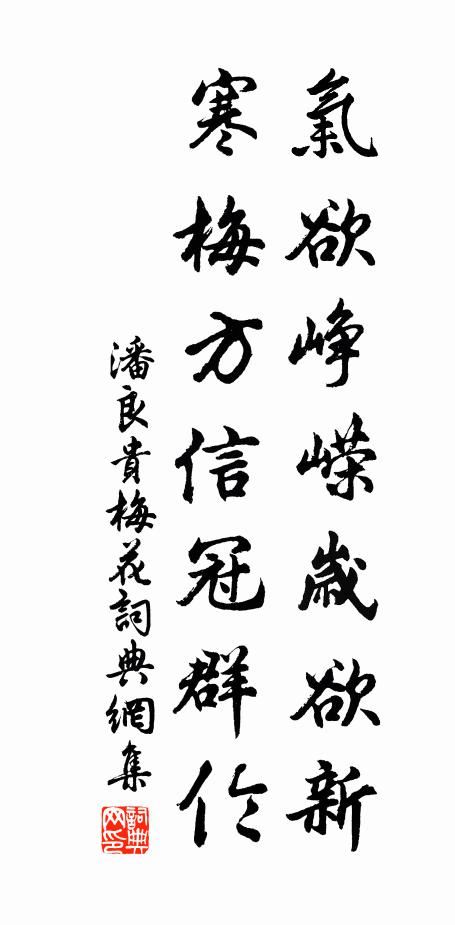 氣欲崢嶸歲欲新
寒梅方信冠群伦
潘良貴梅花詞典網集
詞典网印